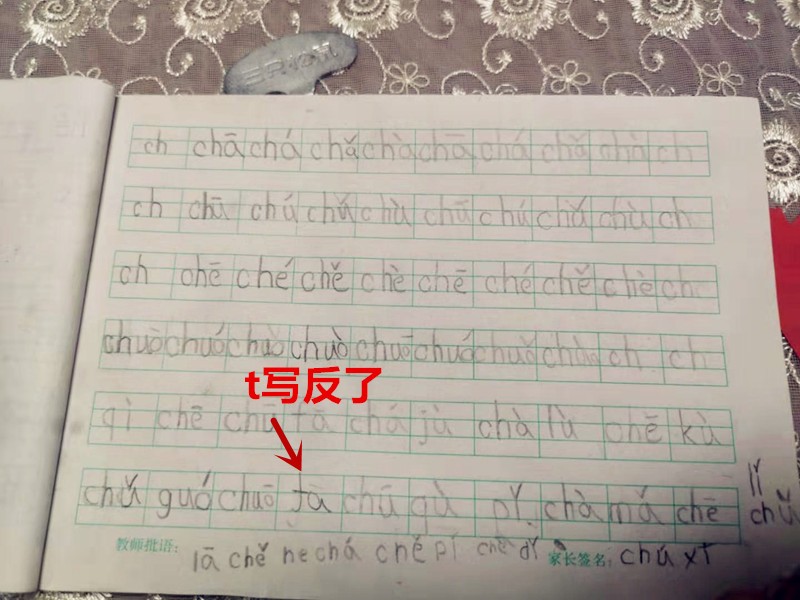 ch chā chá chǎ chà chā chá chǎ chà ch
ch chū chú chǔ chù chū chú chǔ chù ch
ch chē ché chě chè chē ché chě chè ch
chuō chuó chuò chuò chuō chuó chuǒ ch ch
t写反了
qì chē chū tā chá jù chà lù chě kù
chǔ guó chuō tā chū gù pǐ chà má chē
lǐ
chǔ
教师批语: lā chě ne chá ché pí chē dǐ 家长签名: chú xī